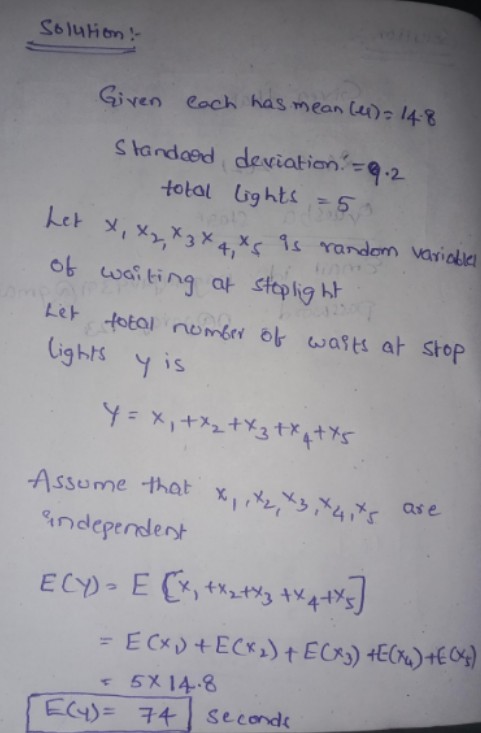 Solution:-
Given each has mean (μ) = 14.8
Standard deviation = 9.2
total lights = 5
Let x₁ x₂, x₃ x₄, x₅ is random variables
of waiting at stoplight
Let total number of waits at stop
lights y is
Y = x₁ + x₂ + x₃ + x₄ + x₅
Assume that x₁, x₂, x₃, x₄, x₅ are
independent
E(Y) = E [x₁ + x₂ + x₃ + x₄ + x₅]
= E(x₁) + E(x₂) + E(x₃) + E(x₄) + E(x₅)
= 5 × 14.8
E(Y) = 74 seconds